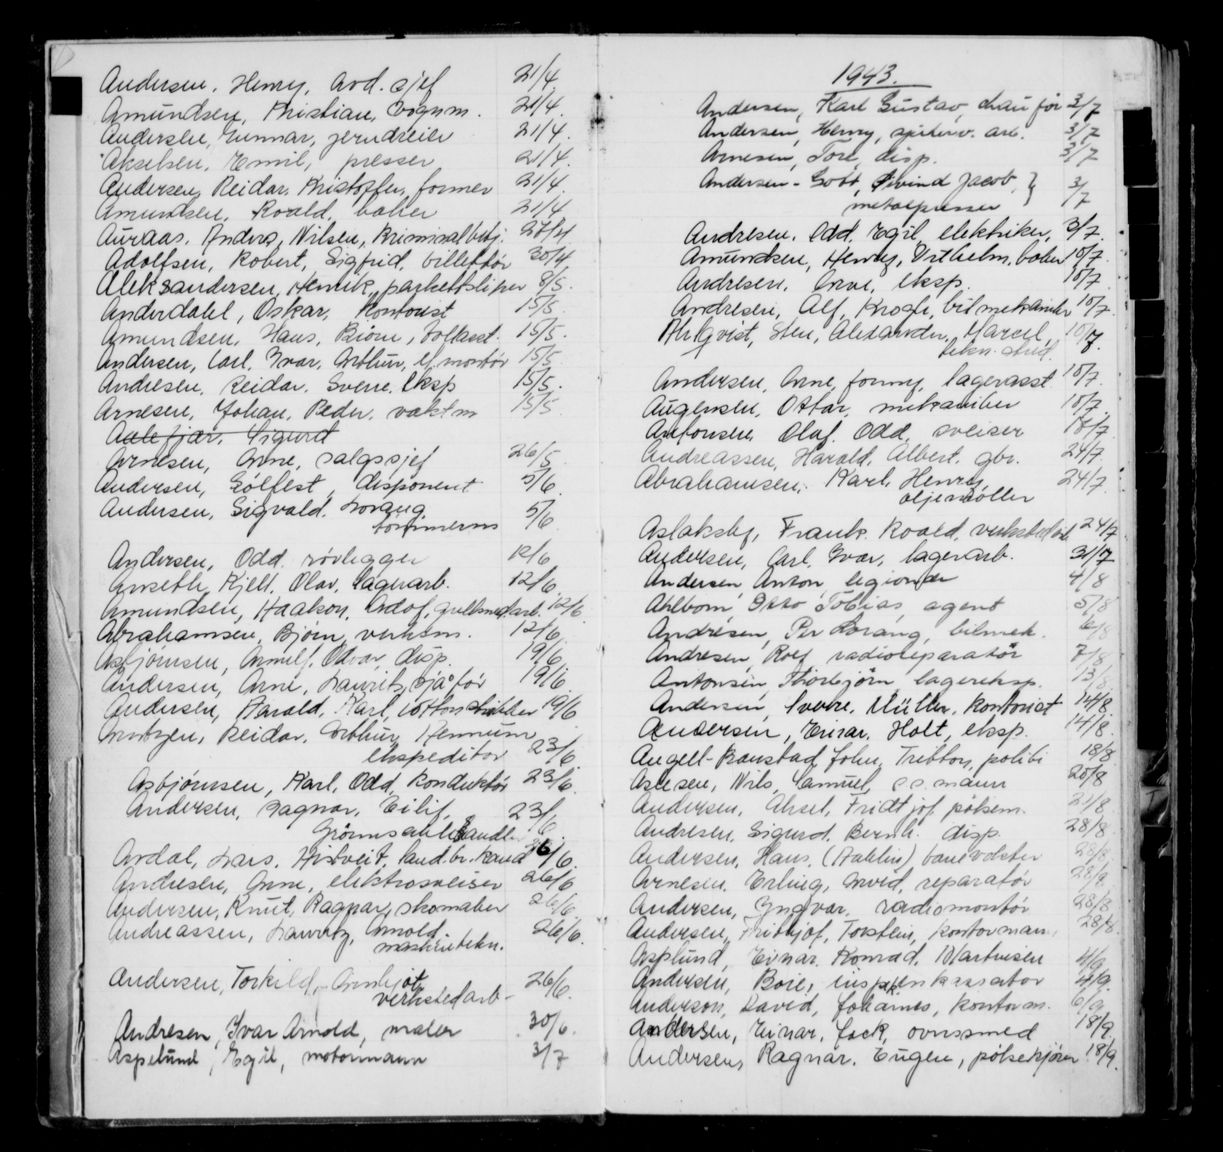 Andersen, Henry, avd. sjef 21/4
Amundsen, Kristian, vognm. 21/4.
Andersen, Gunnar, jerndreier 21/4.
Akselsen, Emil, presser, 21/4.
Andersen, Reidar, Kristoffer, former 21/4.
Amundsen, Roald, baker 21/4
Auraas, Anders, Nilsen, kriminalbetj. 27/4
Adolfsen, Robert, Sigfrid, billettør 30/4
Aleksandersen, Henrik, parkettsliper 8/5.
Anderdahl, Oskar, kontorist 15/5.
Amundsen, Hans, Bjørn, tollasst. 15/5.
Andersen, Carl, Ivar, Arthur, el. montør 15/5
Andresen, Reidar, Sverre, eksp 15/5.
Arnesen, Johan, Peder, vaktm 15/5.
Aalefjær, Sigurd
Arnesen, Arne, salgssjef 26/5.
Andersen, Golfest, disponent 5/6.
Andersen, Sigvald, Lorang
tømmerm 5/6.
Andersen, Odd, rørlegger 12/6
Anseth, Kjell, Olav, lagerarb. 12/6.
Amundsen, Haakon, Adof, gullsmedarb. 12/6.
Abrahamsen, Bjørn, verksm. 12/6.
Asbjørnsen, Arnulf, Odvar, disp. 19/6.
Andersen, Arne, Lauritz, sjåfør 19/6
Andersen, Harald, Karl, 19/6
Arntzen, Reidar, Arthur, Rennum
ekspeditør 23/6.
Asbjørnsen, Karl, Odd, konduktør 23/6.
Andersen, Ragnar, Eilif,
Grønnsakhandl. 23/6.
Ardal, Lars, Histveit, land.br. kand 26/6.
Andresen, Arne, elektrosveiser 26/6
Andersen, Knut, Ragnar, skomaker 26/6.
Andreassen, Lauritz, Arnold.
maskintekn. 26/6.
Andersen, Torkild, Arnljot
verkstedarb- 26/6.
Andresen, Ivar Arnold, maler 30/6.
Aspelund, Egil, motormann 3/7
1943.
Andersen, Karl Gustav, chauför 3/7
Andersen, Henry, arb. 3/7
Arnesen, Tore, disp. 3/7
Andersen-Gott, Øivind Jacob, }
metalpresser } 3/7
Andresen, Odd, Egil, elektriker, 3/7
Amundsen, Henry, Vilhelm, baker 10/7.
Andresen, Arve, eksp. 10/7.
Andresen, Alf, Krogh, bilmekaniker 10/7.
Ahlqvist, Sten, Alexander, Marcel,
tekn. stud. 10/7.
Andersen, Arne, Jonny, lagerasst 10/7.
Augensen, Ottar, mekaniker 10/7.
Antonsen, Olaf, Odd, sveiser 10/7.
Andreassen, Harald, Albert, gbr. 24/7.
Abrahamsen, Karl, Henry,
oljemøller 24/7.
Aslaksby, Frank, Roald, 24/7
Andersen, Carl, Ivar, lagerarb. 31/7
Andersen Anton legionær 4/8
Ahlbom, Otto Tobias, agent 5/8
Andresen, Per Lorang, bilmek. 6/8
Andresen, Rolf radioreparatør 7/8
Antonsen, Thorbjørn, lagereksp. 13/8
Andersen, Sverre, Müller, kontorist 14/8
Andersen, Einar, Holt, eksp. 14/8.
Angell-Kanstad, John, Trebbov, politi 18/8
Askesen, Nils, Samuel, ss. mann 20/8
Andersen, Aksel, Fridtjof, pølsem. 21/8
Andresen, Sigurd, Bernh. disp. 28/8.
Andersen, Hans, (Dahlin) banevokter 28/8
Arnesen, Erling, Arvid, reparatør 28/8,
Andersen, Yngvar, radiomontør 28/8
Andersen, Fridtjof, Torstein, kontormann, 28/8.
Asplund, Einar, Konrad, Martinsen 4/9.
Andersen, Boie, 4/9.
Anderson, David, Johannes, kontorm. 6/9.
Andersen, Einar, Jack, ovnssmed 18/9
Andersen, Ragnar, Eugen, pølsekjører 18/9.